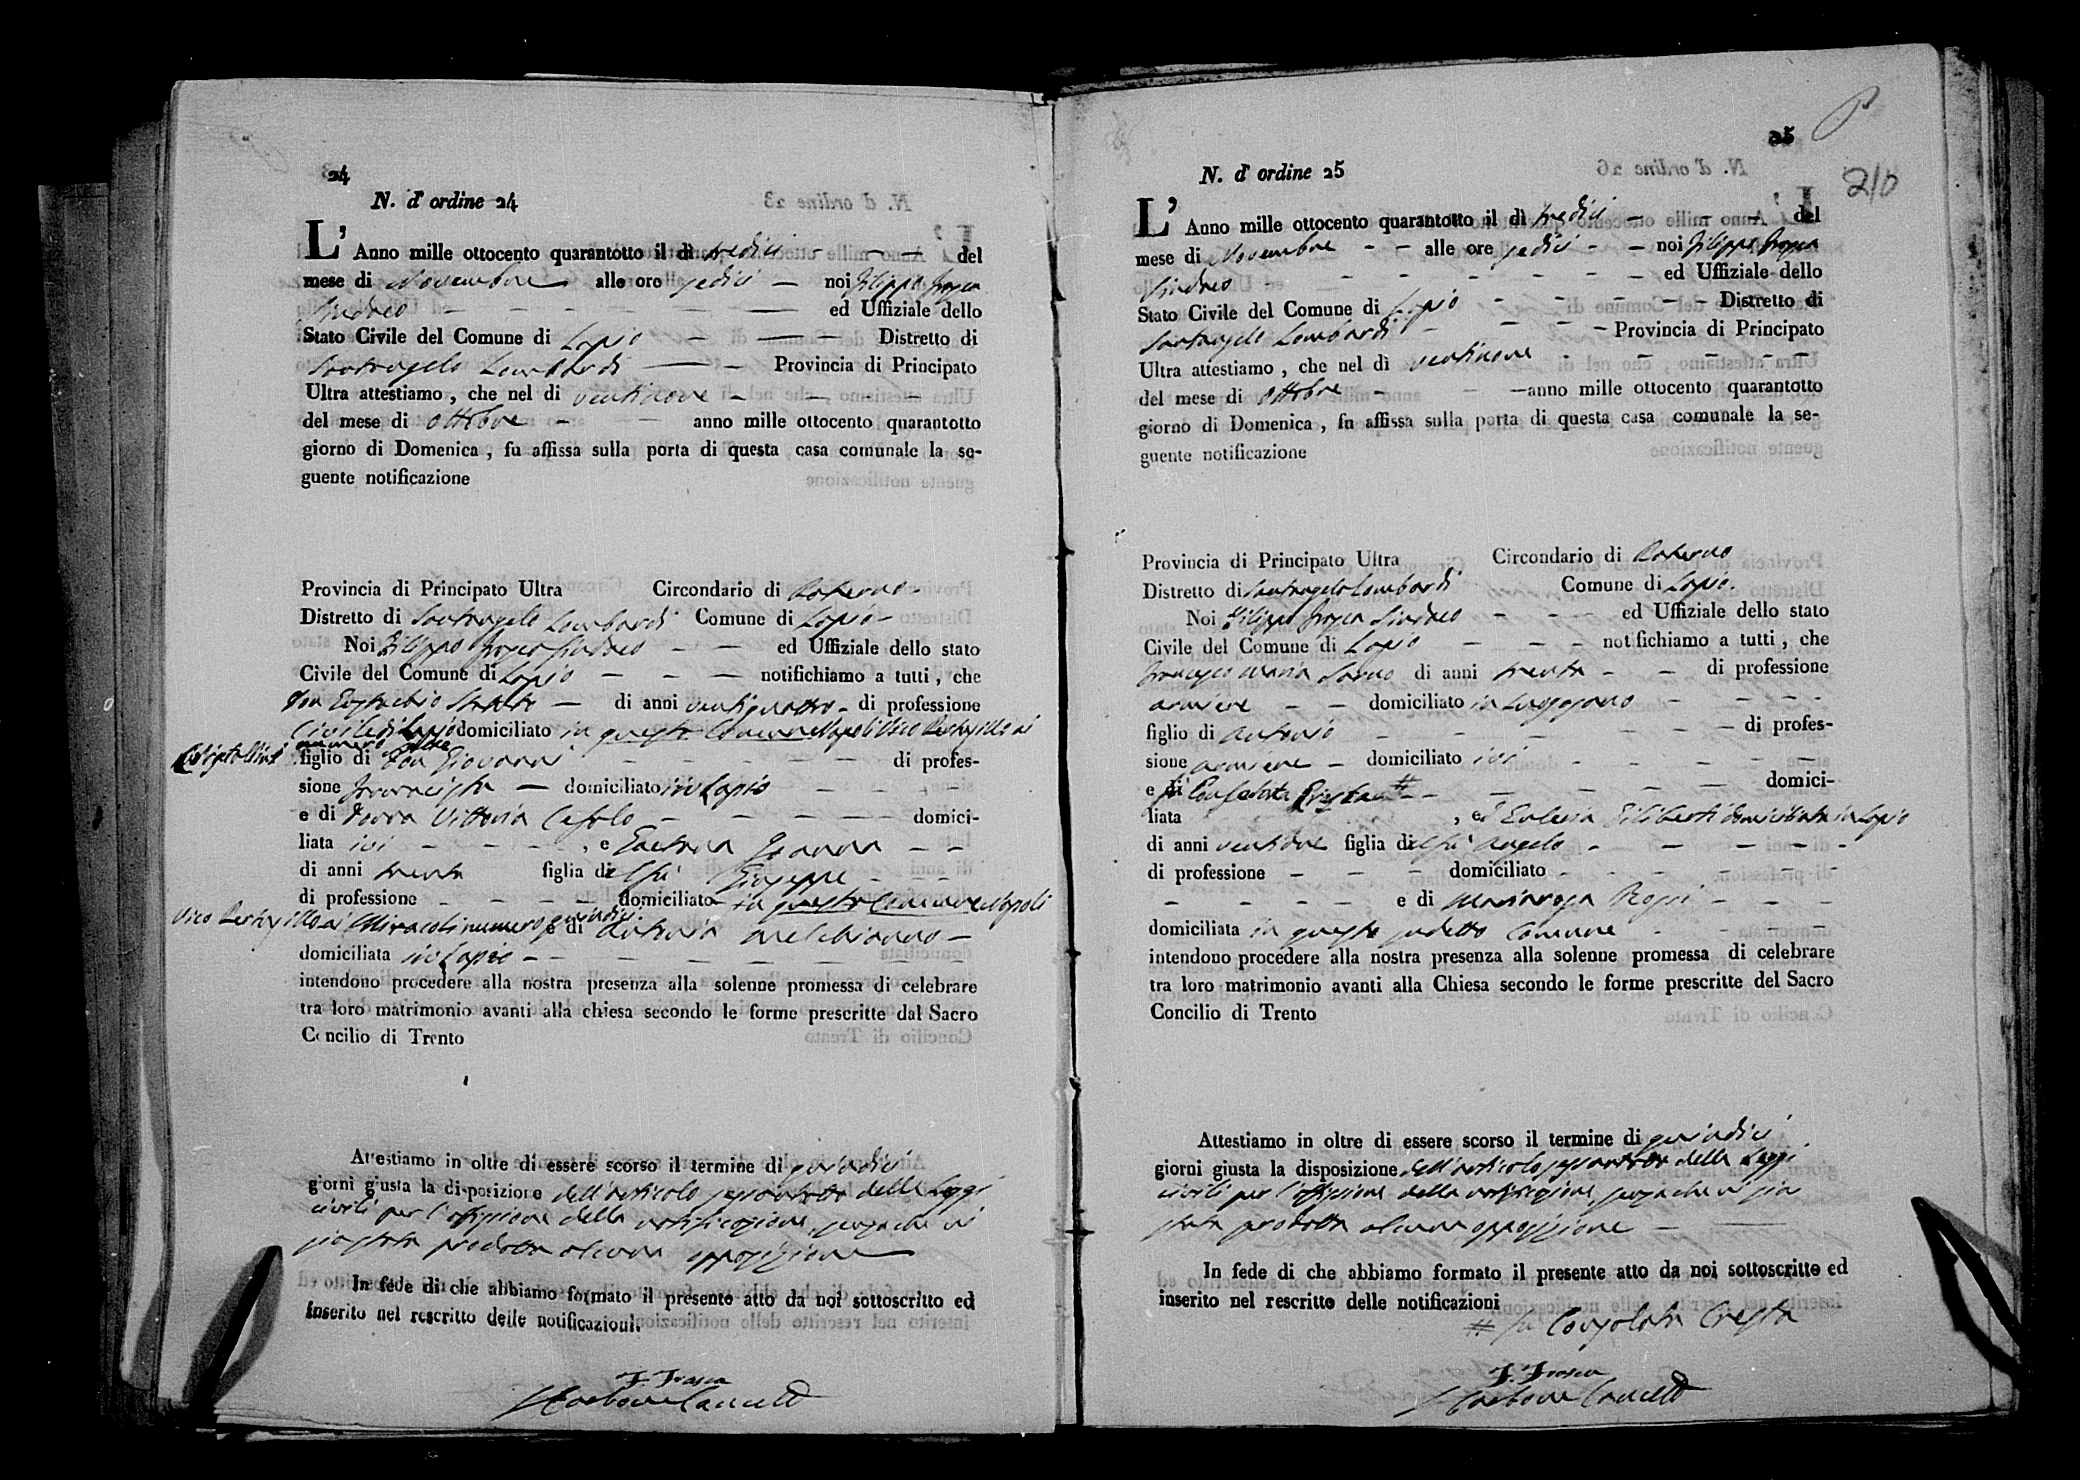 24
N. d' ordine 24
L' Anno mille ottocento quarantotto il dì tredici del
mese di Novembre alle ore sedici noi Filippo Frasca
Sindaco ed Uffiziale dello
Stato Civile del Comune di Lapio Distretto di
Santangelo Lombardi Provincia di Principato
Ultra attestiamo, che nel dì ventinove
del mese di Ottobre anno mille ottocento quarantotto
giorno di Domenica, fu affissa sulla porta di questa casa comunale la se-
guente notificazione
Provincia di Principato Ultra Circondario di Paterno
Distretto di Santangelo Lombardi Comune di Lapio
Noi Filippo Frasca Sindaco ed Uffiziale dello stato
Civile del Comune di Lapio notifichiamo a tutti, che
Don Eustachio di anni ventiquattro di professione
Civile di Lapio domiciliato in questo Comune Napoli Vico
numero
figlio di Don Giovanni di profes-
sione domiciliato in Lapio
e di Donna Vittoria domici-
liata ivi , e Gaetana
di anni trenta figlia di Giuseppe
di professione domiciliato in questo Comune Napoli
Vico Miracoli numero quindici e di Antonia
domiciliata in Lapio
intendono procedere alla nostra presenza alla solenne promessa di celebrare
tra loro matrimonio avanti alla chiesa secondo le forme prescritte dal Sacro
Concilio di Trento
Attestiamo in oltre di essere scorso il termine di quindici
giorni giusta la disposizione dell'articolo sessantotto delle Leggi
civili per l'affissione della notificazione, senza che vi
sia stata prodotta alcuna opposizione
In fede di che abbiamo formato il presente atto da noi sottoscritto ed
inserito nel rescritto delle notificazioni.
F. Frasca
25
210
N. d' ordine 25
L' Anno mille ottocento quarantotto il dì tredici del
mese di Novembre alle ore sedici noi Filippo Frasca
Sindaco ed Uffiziale dello
Stato Civile del Comune di Lapio Distretto di
Santangelo Lombardi Provincia di Principato
Ultra attestiamo, che nel dì ventinove
del mese di Ottobre anno mille ottocento quarantotto
giorno di Domenica, fu affissa sulla porta di questa casa comunale la se-
guente notificazione
Provincia di Principato Ultra Circondario di Paterno
Distretto di Santangelo Lombardi Comune di Lapio
Noi Filippo Frasca Sindaco ed Uffiziale dello stato
Civile del Comune di Lapio notifichiamo a tutti, che
Francesco Maria Sarno di anni trenta di professione
armiere domiciliato in Lussogano
figlio di Antonio di profes-
sione armiere domiciliato ivi
e di # domici-
liata , ed Eulalia Ciliberti domiciliata in Lapio
di anni ventidue figlia di Angelo
di professione domiciliato
e di Mariarosa
domiciliata in questo sudetto Comune
intendono procedere alla nostra presenza alla solenne promessa di celebrare
tra loro matrimonio avanti alla Chiesa secondo le forme prescritte del Sacro
Concilio di Trento
Attestiamo in oltre di essere scorso il termine di quindici
giorni giusta la disposizione dell'articolo sessantotto delle Leggi
civili per l'affissione della notificazione, senza che vi sia
stata prodotta alcuna opposizione
In fede di che abbiamo formato il presente atto da noi sottoscritto ed
inserito nel rescritto delle notificazioni
# fu Consolata Cresta
F. Frasca